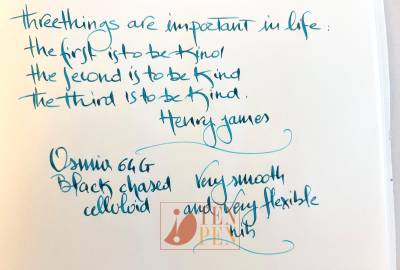 three things are important in life :
the first is to be kind
the second is to be kind
the third is to be kind.
Henry James
Osmia 64G
Black chased
celluloid
Very smooth
and very flexible
nib
PEN
PEN